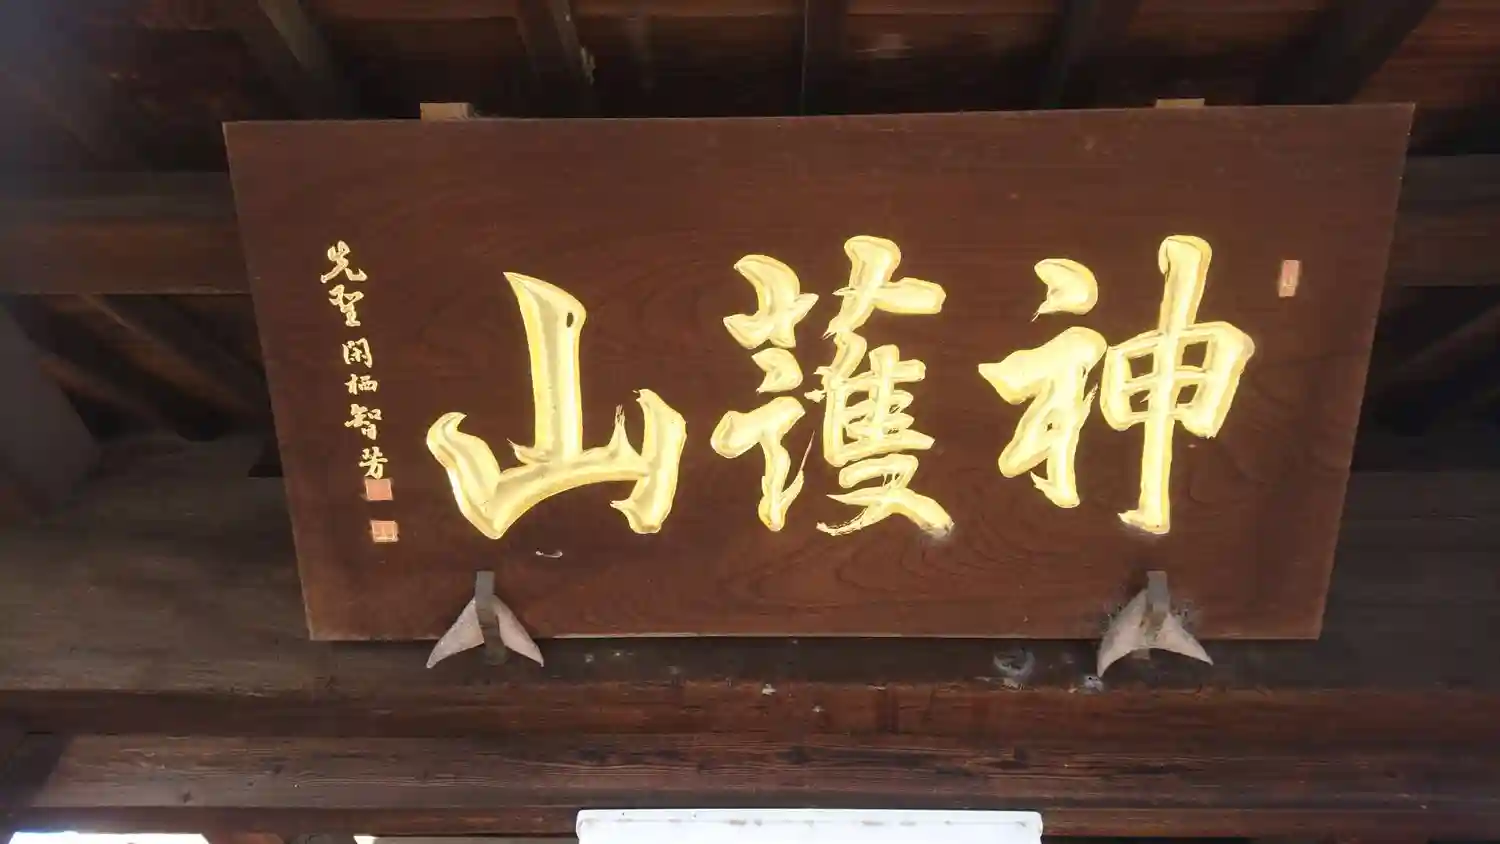 神護山
先聖閑栖智芳